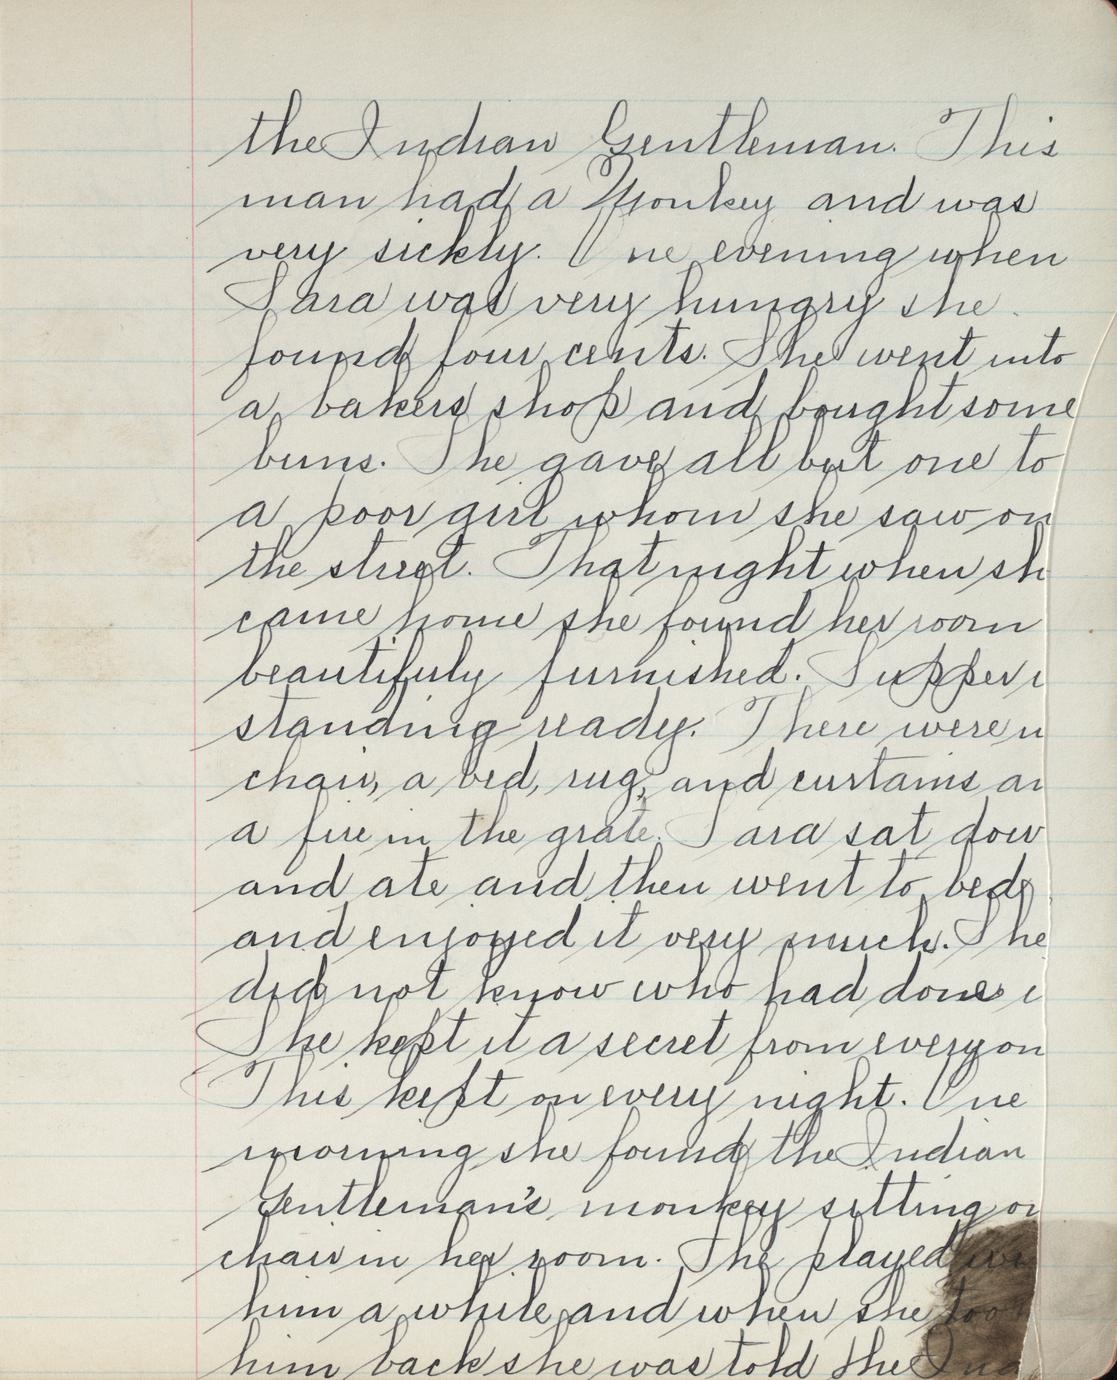 the Indian Gentleman. This
man had a Monkey and was
very sickly. One evening when
Sara was very hungry she
found four cents. She went into
a bakers shop and bought some
buns. She gave all but one to
a poor girl whom she saw on
the street. That night when sh
came home she found her room
beautifuly furnished. Supper
standing ready. There were
chair, a bed, rug, and curtains an
a fire in the grate. Sara sat dow
and ate and then went to bed
and enjoyed it very much. She
did not know who had done i
She kept it a secret from everyon
This kept on every night. One
morning she found the Indian
Gentleman's monkey sitting on
chair in her room. She played wi
him a while and when she too
him back she was told the Ind